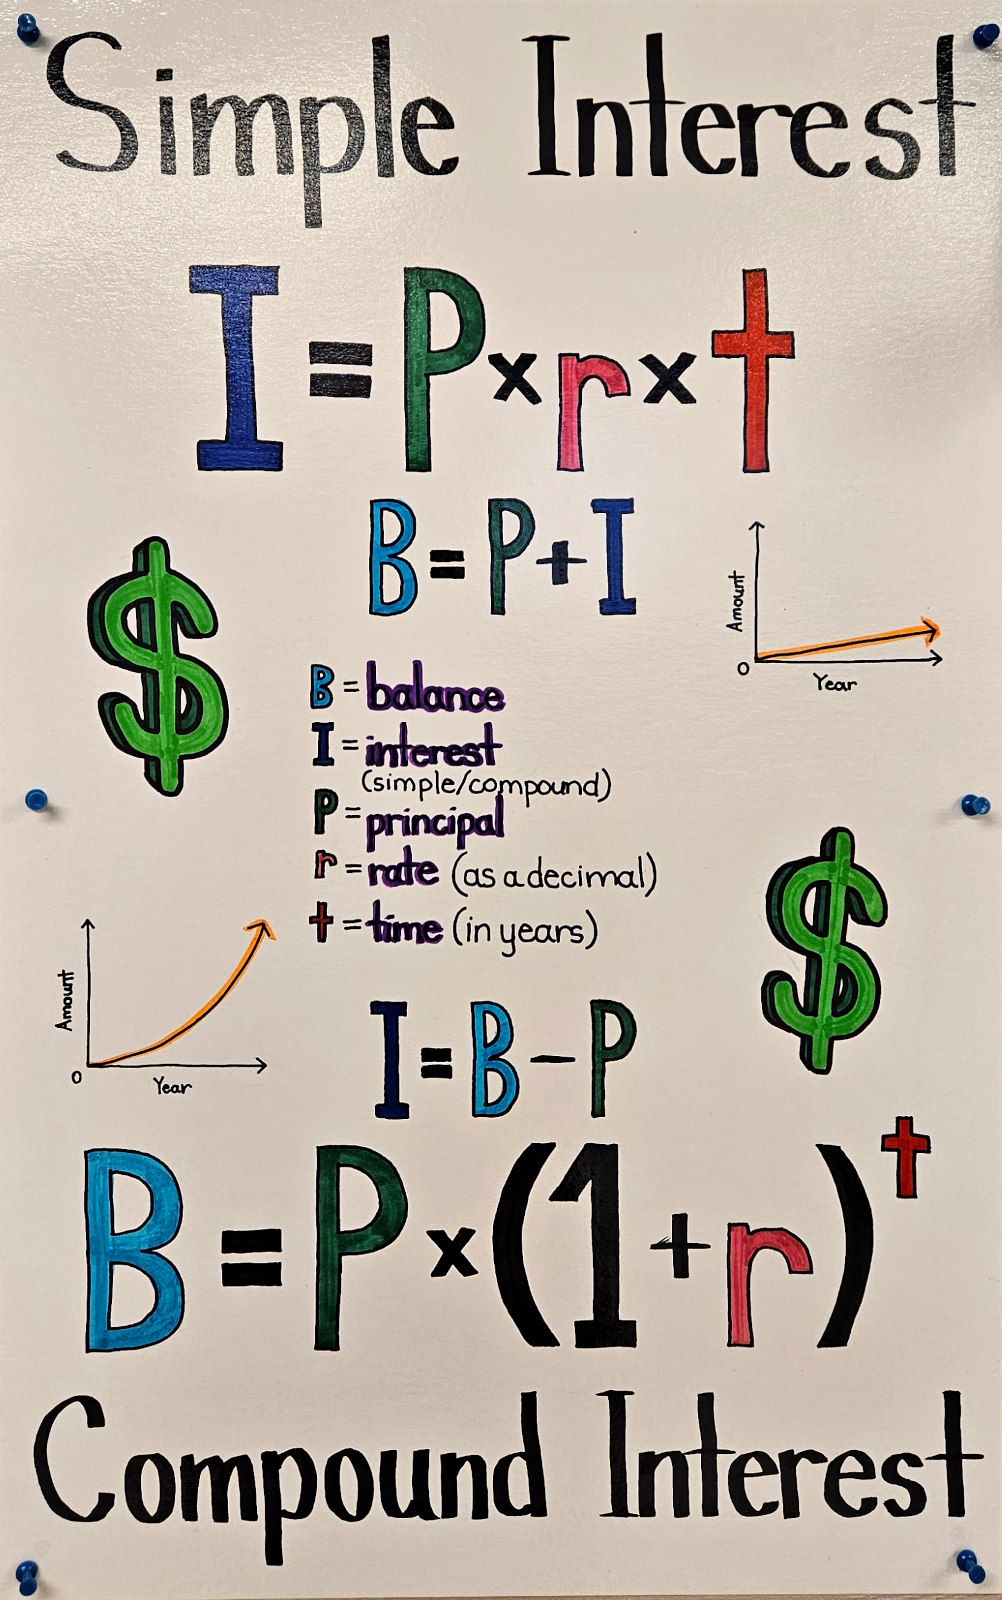 Simple Interest
I = P × r × t
B = P + I
Amount
0
Year
B = balance
I = interest
(simple/compound)
P = principal
r = rate (as a decimal)
t = time (in years)
Amount
0
Year
I = B - P
B = P × (1 + r)^t
Compound Interest
$
$